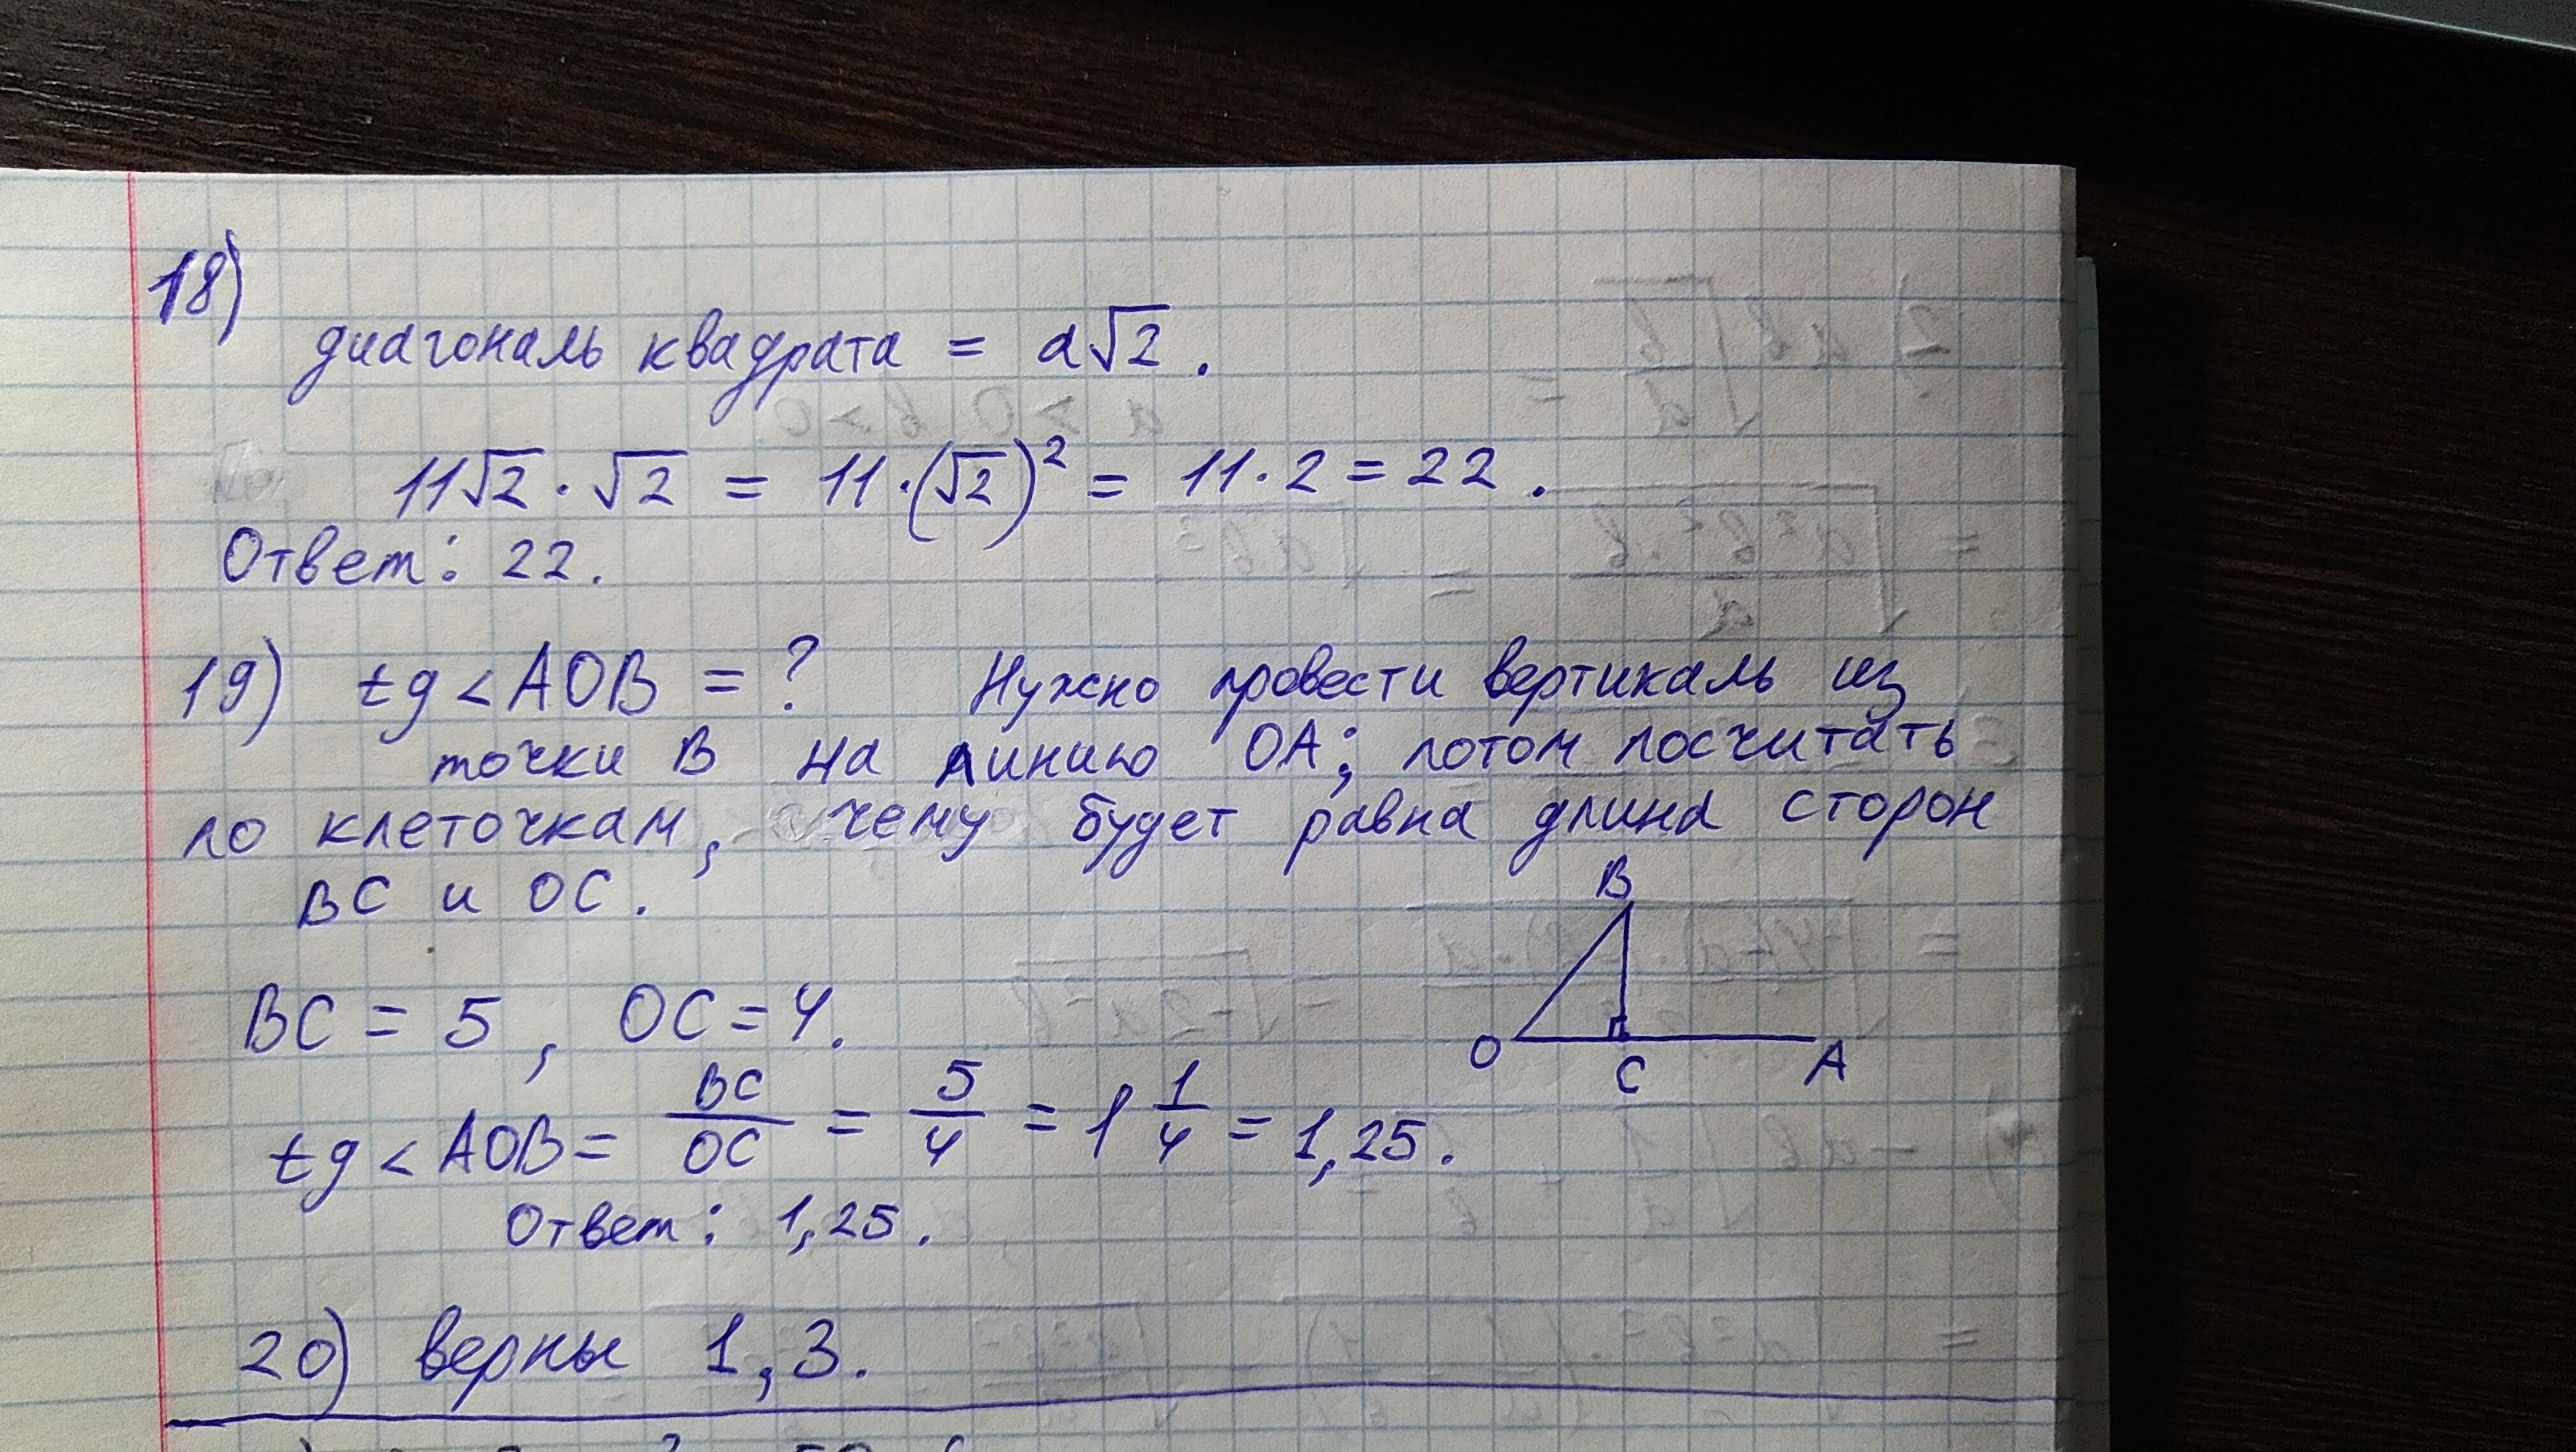 18)
диагональ квадрата = a√2.
11√2 · √2 = 11·(√2)² = 11·2 = 22.
Ответ: 22.
19) tg < AOB = ? Нужно провести вертикаль из
точки B на линию OA; потом посчитать
по клеточкам, чему будет равна длина сторон
BC и OC.
B
BC = 5, OC = 4.
O C A
tg < AOB = BC/OC = 5/4 = 1 1/4 = 1,25.
Ответ: 1,25.
20) верны 1, 3.